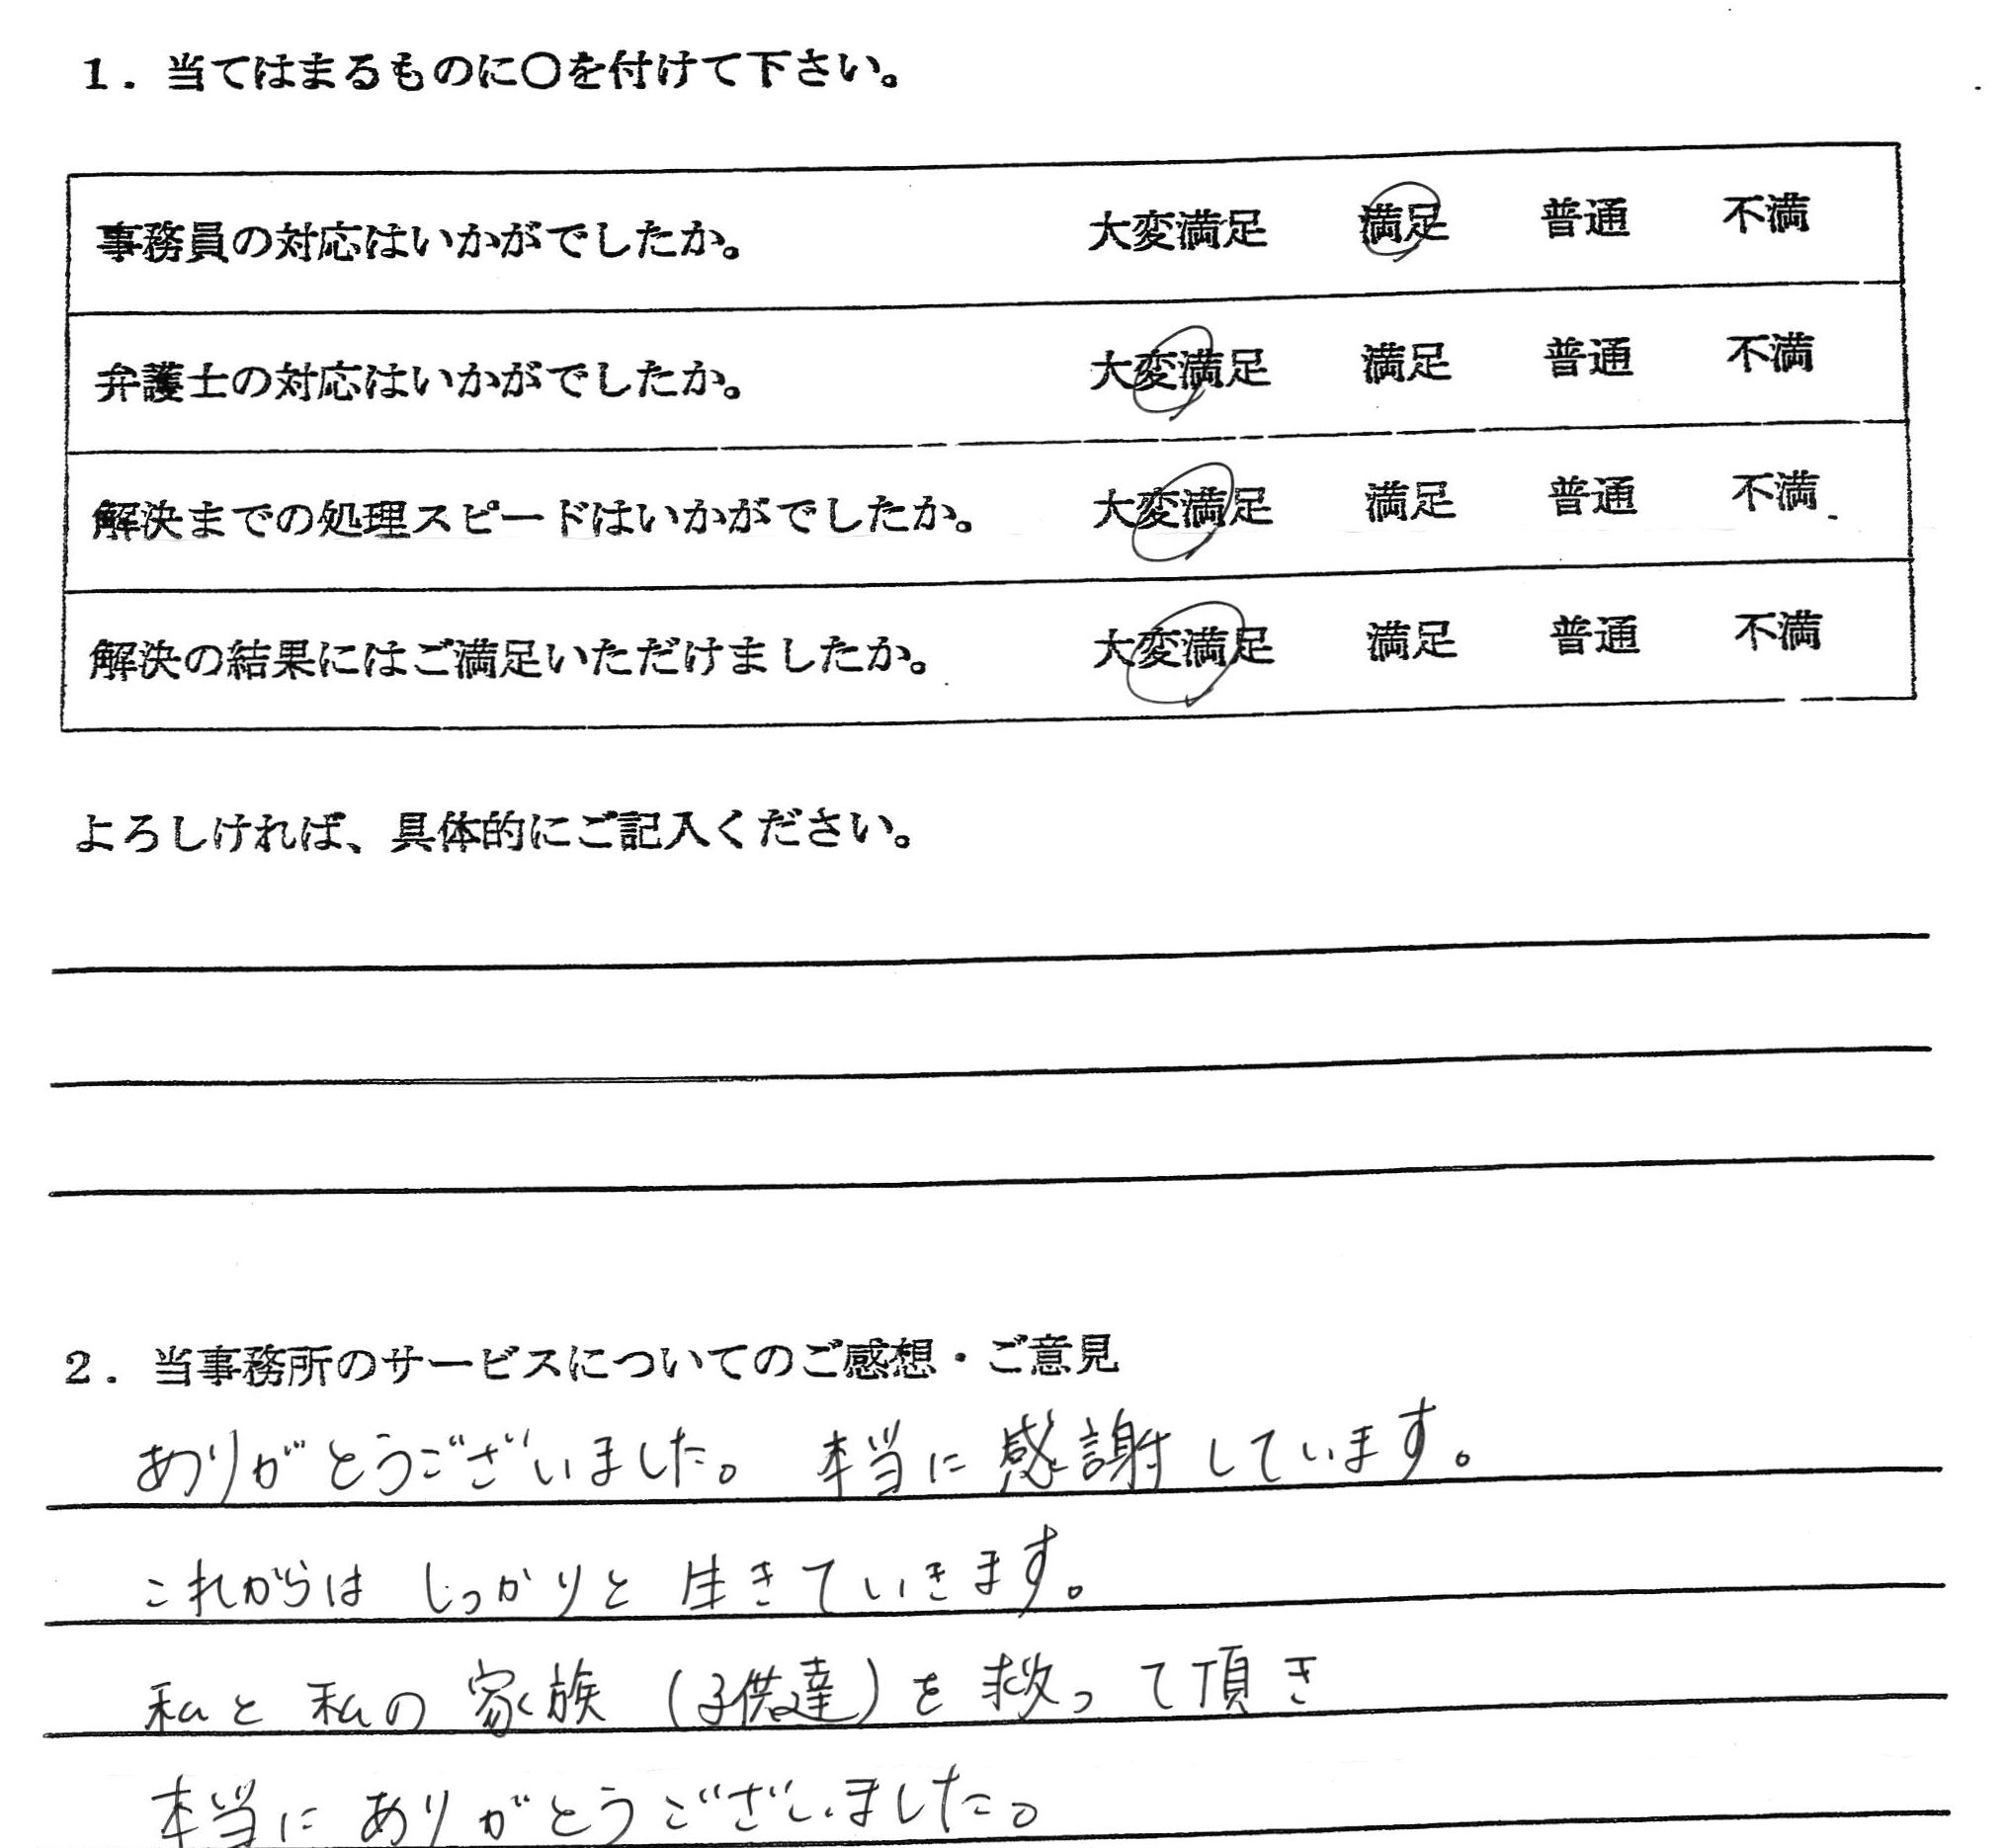 1. 当てはまるものに〇を付けて下さい。
事務員の対応はいかがでしたか。 大変満足 満足 普通 不満
弁護士の対応はいかがでしたか。 大変満足 満足 普通 不満
解決までの処理スピードはいかがでしたか。 大変満足 満足 普通 不満
解決の結果にはご満足いただけましたか。 大変満足 満足 普通 不満
よろしければ、具体的にご記入ください。
2. 当事務所のサービスについてのご感想・ご意見
ありがとうございました。 本当に感謝しています。
これからは しっかりと 生きていきます。
私と 私の 家族 (子供達)を 救って頂き
本当に ありがとうございました。